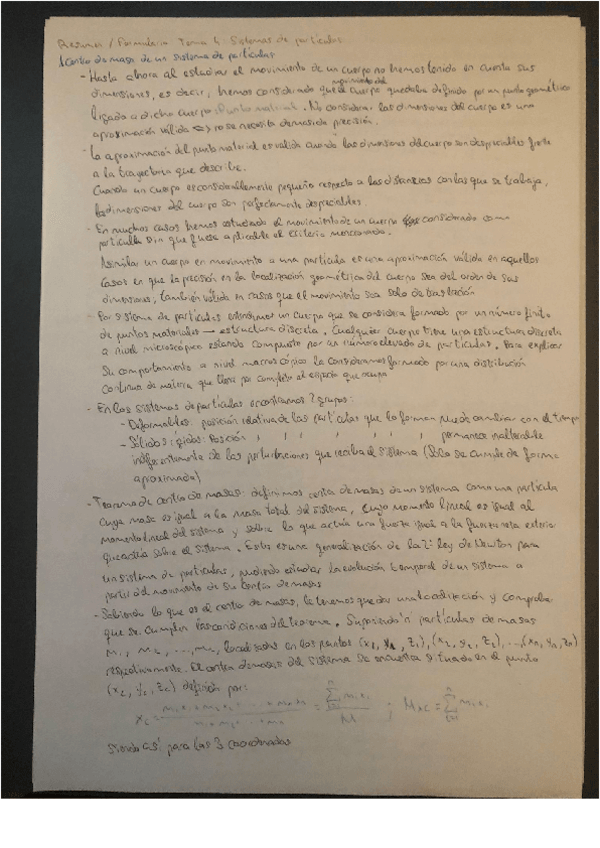 Resumen / Formulario Tema 4 Sistemas de partículas
1 Centro de masa de un sistema de partículas
- Hasta ahora al estudiar el movimiento de un cuerpo no hemos tenido en cuenta sus
dimensiones, es decir, hemos considerado que el movimiento del cuerpo quedaba definido por un punto geométrico
ligado a dicho cuerpo (Punto material). No considerar las dimensiones del cuerpo es una
aproximación válida => no se necesita demasiada precisión.
- La aproximación del punto material es valida cuando las dimensiones del cuerpo son despreciables frente
a la trayectoria que describe.
Cuando un cuerpo es considerablemente pequeño respecto a las distancias con las que se trabaja,
las dimensiones del cuerpo son perfectamente despreciables.
- En muchos casos hemos estudiado el movimiento de un cuerpo considerado como
partícula sin que fuese aplicable el criterio mencionado.
Asimilar un cuerpo en movimiento a una partícula es una aproximación válida en aquellos
casos en que la precisión en la localización geométrica del cuerpo sea del orden de sus
dimensiones, también válida en casos que el movimiento sea solo de traslación
- Por sistema de partículas entendemos un cuerpo que se considera formado por un número finito
de puntos materiales → estructura discreta. Cualquier cuerpo tiene una estructura discreta
a nivel microscópico estando compuesto por un número elevado de partículas. Para explicar
su comportamiento a nivel macroscópico lo consideramos formado por una distribución
continua de materia que llena por completo el espacio que ocupa
- En los sistemas de partículas encontramos 2 grupos:
- Deformables: posición relativa de las partículas que lo forman puede cambiar con el tiempo
- Sólidos rígidos: Posición , , , , , , , permanece inalterable
independientemente de las perturbaciones que reciba el sistema (Solo se cumple de forma
aproximada)
- Teorema de centro de masas: definimos centro de masas de un sistema como una partícula
cuya masa es igual a la masa total del sistema, cuyo momento lineal es igual al
momento lineal del sistema y sobre la que actúa una fuerza igual a la fuerza neta exterior
que actúa sobre el sistema. Esta es una generalización de la 2ª ley de Newton para
un sistema de partículas, pudiendo estudiar la evolución temporal de un sistema a
partir del movimiento de su centro de masas
- Sabiendo lo que es el centro de masas, le tenemos que dar una localización y comprobar
que se cumplen las condiciones del teorema. Suponiendo n partículas de masas
m₁, m₂, ..., mₙ, localizadas en los puntos (x₁, y₁, z₁), (x₂, y₂, z₂), ..., (xₙ, yₙ, zₙ)
respectivamente. El centro de masas del sistema se encuentra situado en el punto
(x_c, y_c, z_c) definido por:
x_c = (m₁x₁ + m₂x₂ + ... + mₙxₙ) / (m₁ + m₂ + ... + mₙ) = Σⁿᵢ₌₁ mᵢxᵢ / M ; M x_c = Σⁿᵢ₌₁ mᵢxᵢ
Siendo así para las 3 coordenadas